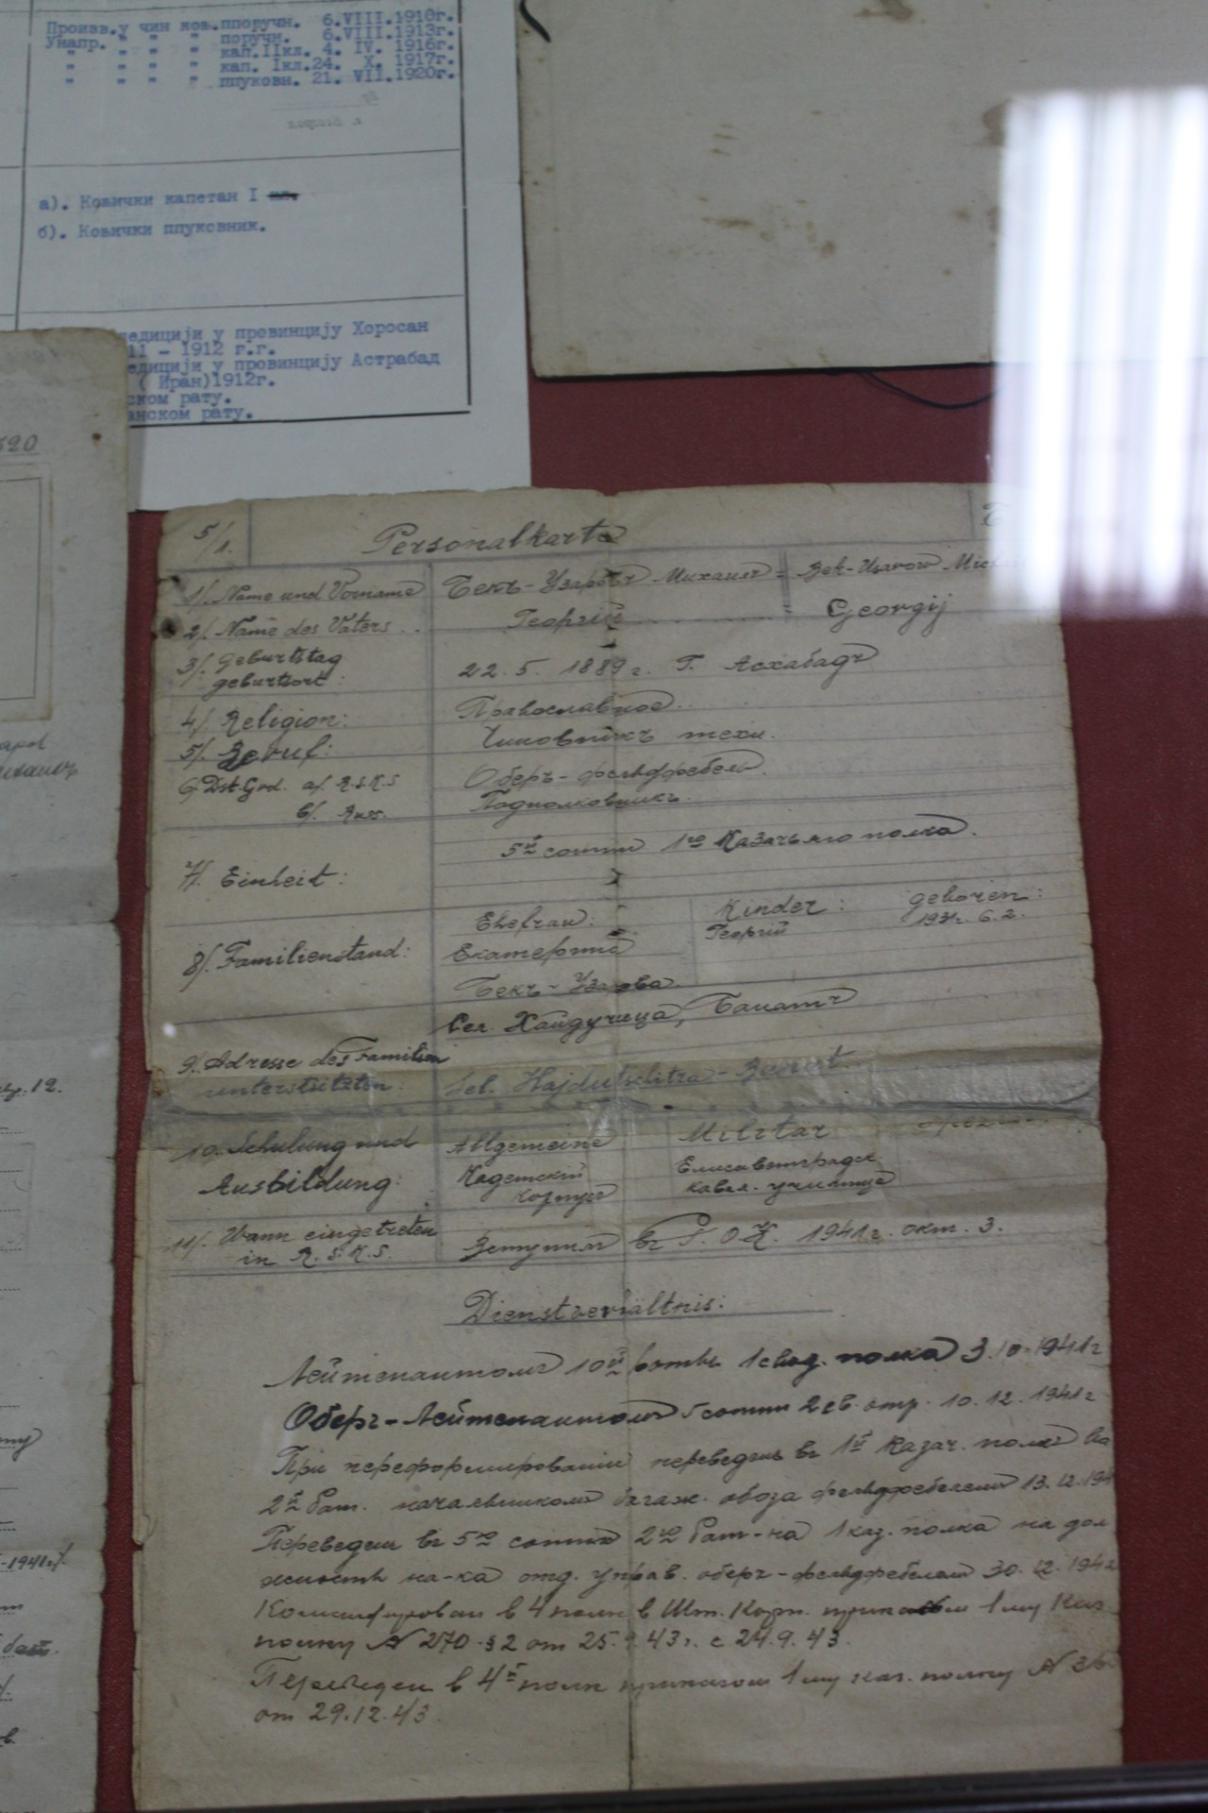 Произв.у чин ков.ппоручн. 6.VIII.1910г.
Унапр. " " " поручн. 6.VIII.1913г.
" " " " кап.IIкл. 4. IV. 1916г.
" " " " кап. Iкл.24. X. 1917г.
" " " " ппуковн. 21. VII.1920г.
а). Коњички капетан I
б). Коњички ппуковник.
едицији у провинцију Хоросан
11 - 1912 г.г.
едицији у провинцију Астрабад
( Иран)1912г.
ском рату.
анском рату.
5/1. Personalkarte
1/. Name und Vorname Бекъ-Узаровъ Михаилъ = Bek-Usarow Mich
2/. Name des Vaters .. Георгій Georgij
3/. Geburtstag
geburtsort: 22. 5. 1889 г. Г. Асхабадъ
4/. Religion: Православное.
5/. Beruf: Чиновникъ техн.
6/. Dst.Grd. a/. R.S.K.S Оберъ-фельдфебель.
б/. Russ. Подполковникъ.
7/. Einheit: 5й сотни 1го Казачьяго полка.
8/. Familienstand: Ehefrau: Kinder: geboren:
Георгій 1931г. 6. 2.
Екатерина
Бекъ-Узарова.
Сел. Хайдучица, Банатъ
9/. Adresse des Familien
unterstützten: Sel. Hajdutschitza - Banat.
10. Schulung und Allgemeine Militär
Ausbildung: Кадетскій Елисаветградск.
корпусъ кавал. училище
11/. Wann eingetreten
in R.S.K.S. Вступилъ въ Р.О.К. 1941г. окт. 3.
Dienstverhältnis:
Лейтенантомъ 10й сотни 1 свод. полка 3.10.1941г
Оберъ-Лейтенантомъ 5 сотни 2 св. отр. 10. 12. 1941г
При переформированіи переведенъ въ 1й Казач. полкъ на
2й бат. начальникомъ багаж. обоза фельдфебелемъ 13.12.194
Переведен въ 5ю сотню 2го бат-на 1 каз. полка на дол
жность на-ка отд. управ. оберъ-фельдфебелемъ 30. 12. 194
Командирован в 4 полк в Шт. Корп. приказом 1му Каз.
полку N 270 §2 от 25.9.43г. с 24.9.43.
Переведен в 4й полк приказом 1му каз. полку N
от 29.12.43.